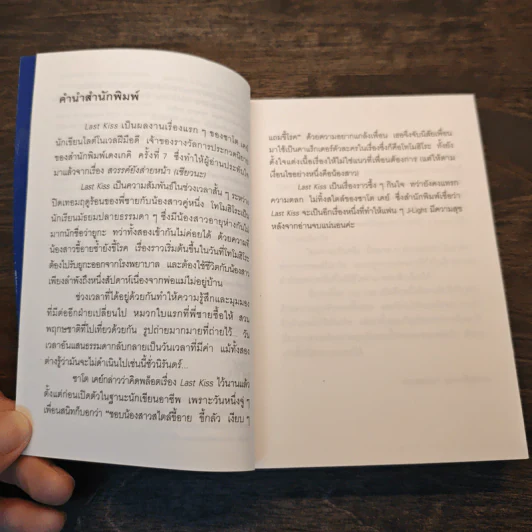 คำนำสำนักพิมพ์
Last Kiss เป็นผลงานเรื่องแรก ๆ ของซาโต เคย์
นักเขียนไลต์โนเวลฝีมือดี เจ้าของรางวัลการประกวดนิยาย
ของสำนักพิมพ์เดงเกคิ ครั้งที่ 7 ซึ่งทำให้ผู้อ่านประทับใจ
มาแล้วจากเรื่อง สวรรค์ยังส่ายหน้า (เซียวนะ)
Last Kiss เป็นความสัมพันธ์ในช่วงเวลาสั้น ๆ ระหว่าง
ปิดเทอมฤดูร้อนของพี่ชายกับน้องสาวคู่หนึ่ง โทโมสิโระเป็น
นักเรียนมัธยมปลายธรรมดา ๆ ซึ่งมีน้องสาวอายุห่างกันไม่
มากนักชื่อว่ายูกะ ทว่าทั้งสองเข้ากันไม่ค่อยได้ ด้วยความที่
น้องสาวขี้อายซ้ำยังขี้โรค เรื่องราวเริ่มต้นขึ้นในวันที่โทโมสิโระ
ต้องไปรับยูกะออกจากโรงพยาบาล และต้องใช้ชีวิตกับน้องสาว
เพียงลำพังถึงหนึ่งสัปดาห์เนื่องจากพ่อแม่ไม่อยู่บ้าน
ช่วงเวลาที่ได้อยู่ด้วยกันทำให้ความรู้สึกและมุมมอง
ที่มีต่ออีกฝ่ายเปลี่ยนไป หมวกใบแรกที่พี่ชายซื้อให้ สวน
พฤกษชาติที่ไปเที่ยวด้วยกัน รูปถ่ายมากมายที่ถ่ายไว้ วัน
เวลาอันแสนธรรมดากลับกลายเป็นวันเวลาที่มีค่า แม้ทั้งสอง
ต่างรู้ว่ามันจะไม่ดำเนินไปเช่นนี้ชั่วนิรันดร์...
ซาโต เคย์กล่าวว่าคิดพล็อตเรื่อง Last Kiss ไว้นานแล้ว
ตั้งแต่ก่อนเปิดตัวในฐานะนักเขียนอาชีพ เพราะวันหนึ่งจู่ ๆ
เพื่อนสนิทก็บอกว่า "ชอบน้องสาวสไตล์ขี้อาย ขี้กลัว เงียบ ๆ
แถมขี้โรค" ด้วยความอยากแกล้งเพื่อน เธอจึงจับนิสัยเพื่อน
มาใช้เป็นคาแร็กเตอร์ตัวละครในเรื่องซึ่งก็คือโทโมสิโระ ทั้งยัง
ตั้งใจแต่งเนื้อเรื่องให้ไม่ใช่แนวที่เพื่อนต้องการ (แต่ให้ตาม
เงื่อนไขอย่างหนึ่งคือน้องสาว)
Last Kiss เป็นเรื่องราวซึ้ง ๆ กินใจ ทว่ายังคงแทรก
ความตลก ไม่ทิ้งสไตล์ของซาโต เคย์ ซึ่งสำนักพิมพ์เชื่อว่า
Last Kiss จะเป็นอีกเรื่องหนึ่งที่ทำให้แฟน ๆ J-Light มีความสุข
หลังจากอ่านจบแน่นอนค่ะ